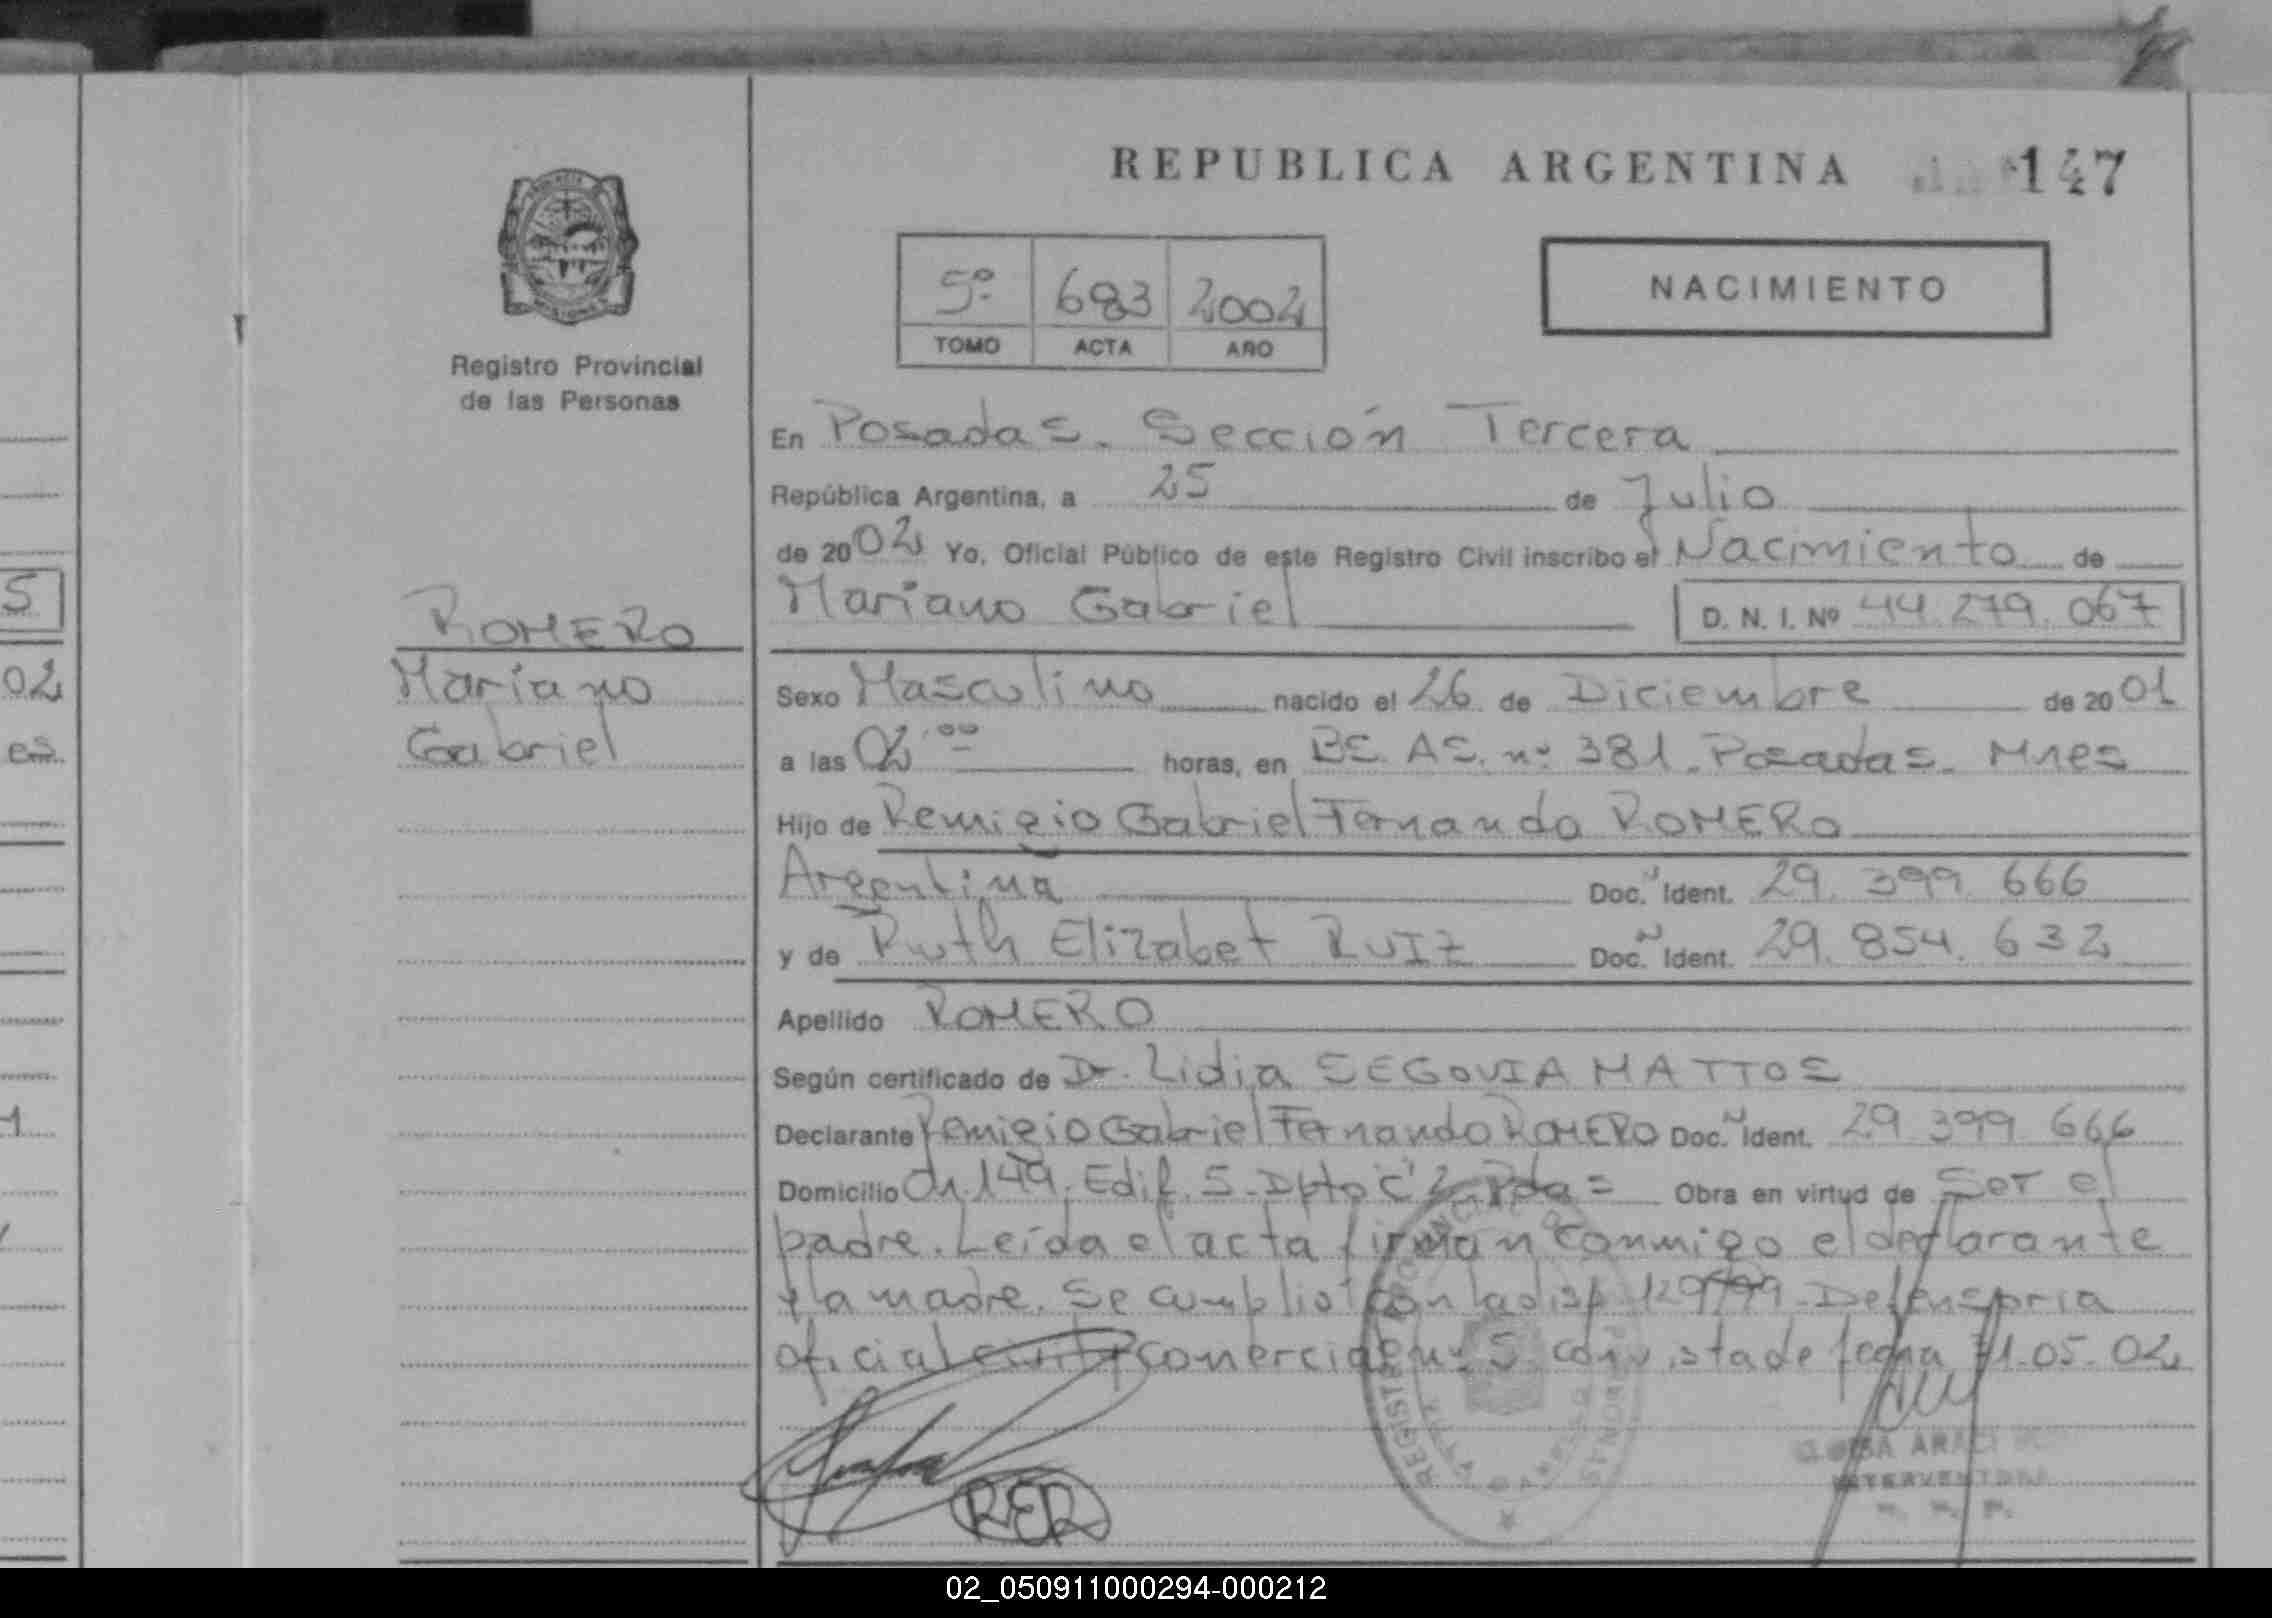 REPUBLICA ARGENTINA 147
5º 683 2002
TOMO ACTA AÑO
NACIMIENTO
Registro Provincial
de las Personas
En Posadas. Sección Tercera
República Argentina, a 25 de Julio
de 2002 Yo, Oficial Público de este Registro Civil inscribo el Nacimiento de
Mariano Gabriel D. N. I. Nº 44.279.067
ROMERO
Mariano
Gabriel
Sexo Masculino nacido el 26 de Diciembre de 2001
a las 02,00 horas, en BS. AS. nº 381. Posadas. Mnes
Hijo de Remigio Gabriel Fernando ROMERO
Argentina Doc. Ident. 29.399.666
y de Ruth Elizabet RUIZ Doc. Ident. 29.854.632
Apellido ROMERO
Según certificado de Dr. Lidia SEGOVIA MATTOS
Declarante Remigio Gabriel Fernando ROMERO Doc. Ident. 29.399.666
Domicilio Ch. 149. Edif. 5. Dpto "C" Pdas Obra en virtud de Ser el
padre. Leída el acta firman conmigo el declarante
y la madre. Se cumplió con la disp. 129/99. Defensoria
oficial civil y comercial nº 5. con vista de fecha 31.05.02
RER
INTERVENTORA
R. P. P.
5
02
es
02_050911000294-000212